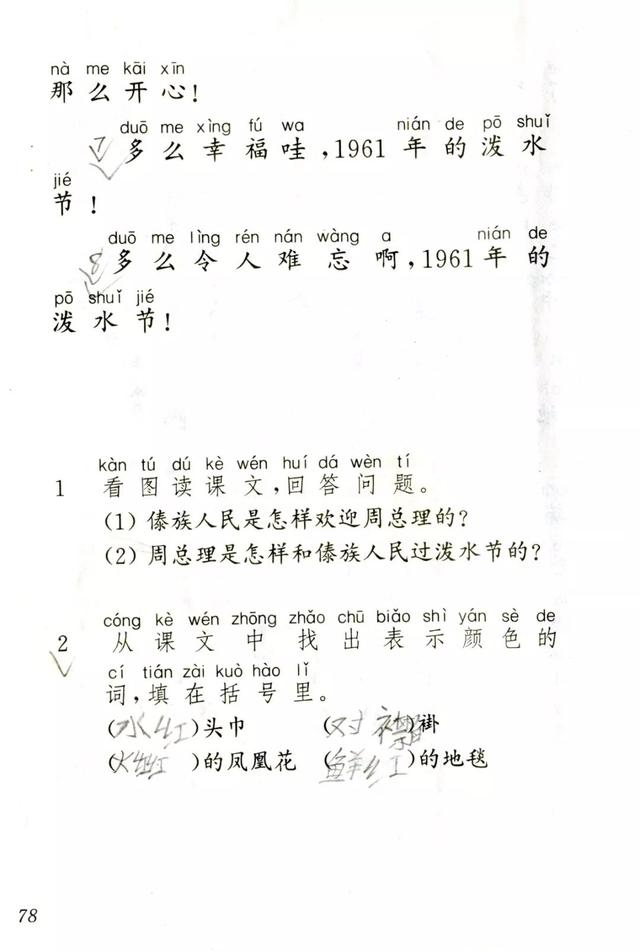 nà me kāi xīn
那么开心!
duō me xìng fú wa nián de pō shuǐ
7 多么幸福哇,1961年的泼水
jié
节!
duō me lìng rén nán wàng a nián de
8 多么令人难忘啊,1961年的
pō shuǐ jié
泼水节!
kàn tú dú kè wén huí dá wèn tí
1 看图读课文,回答问题。
(1) 傣族人民是怎样欢迎周总理的?
(2) 周总理是怎样和傣族人民过泼水节的?
cóng kè wén zhōng zhǎo chū biǎo shì yán sè de
2 从课文中找出表示颜色的
cí tián zài kuò hào lǐ
词,填在括号里。
(水红)头巾 (对襟)褂
(火红)的凤凰花 (鲜红)的地毯
78